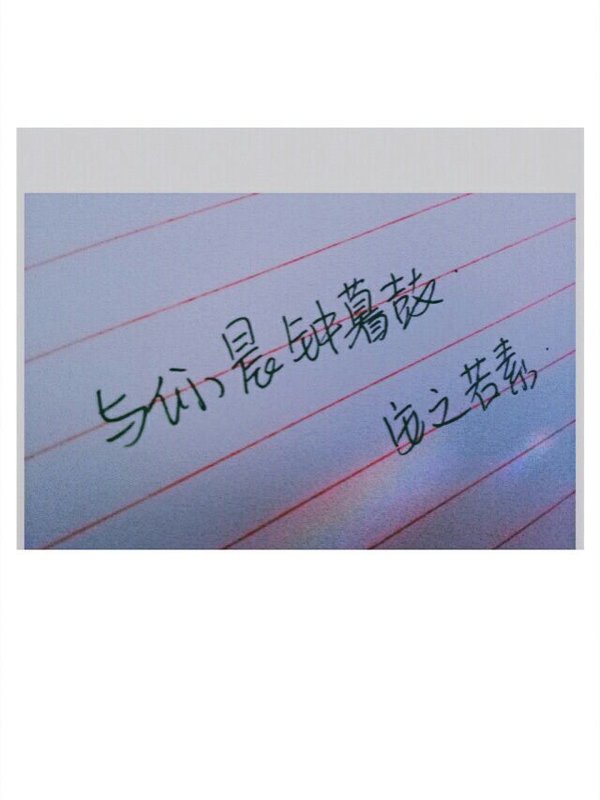 与你晨钟暮鼓
安之若素